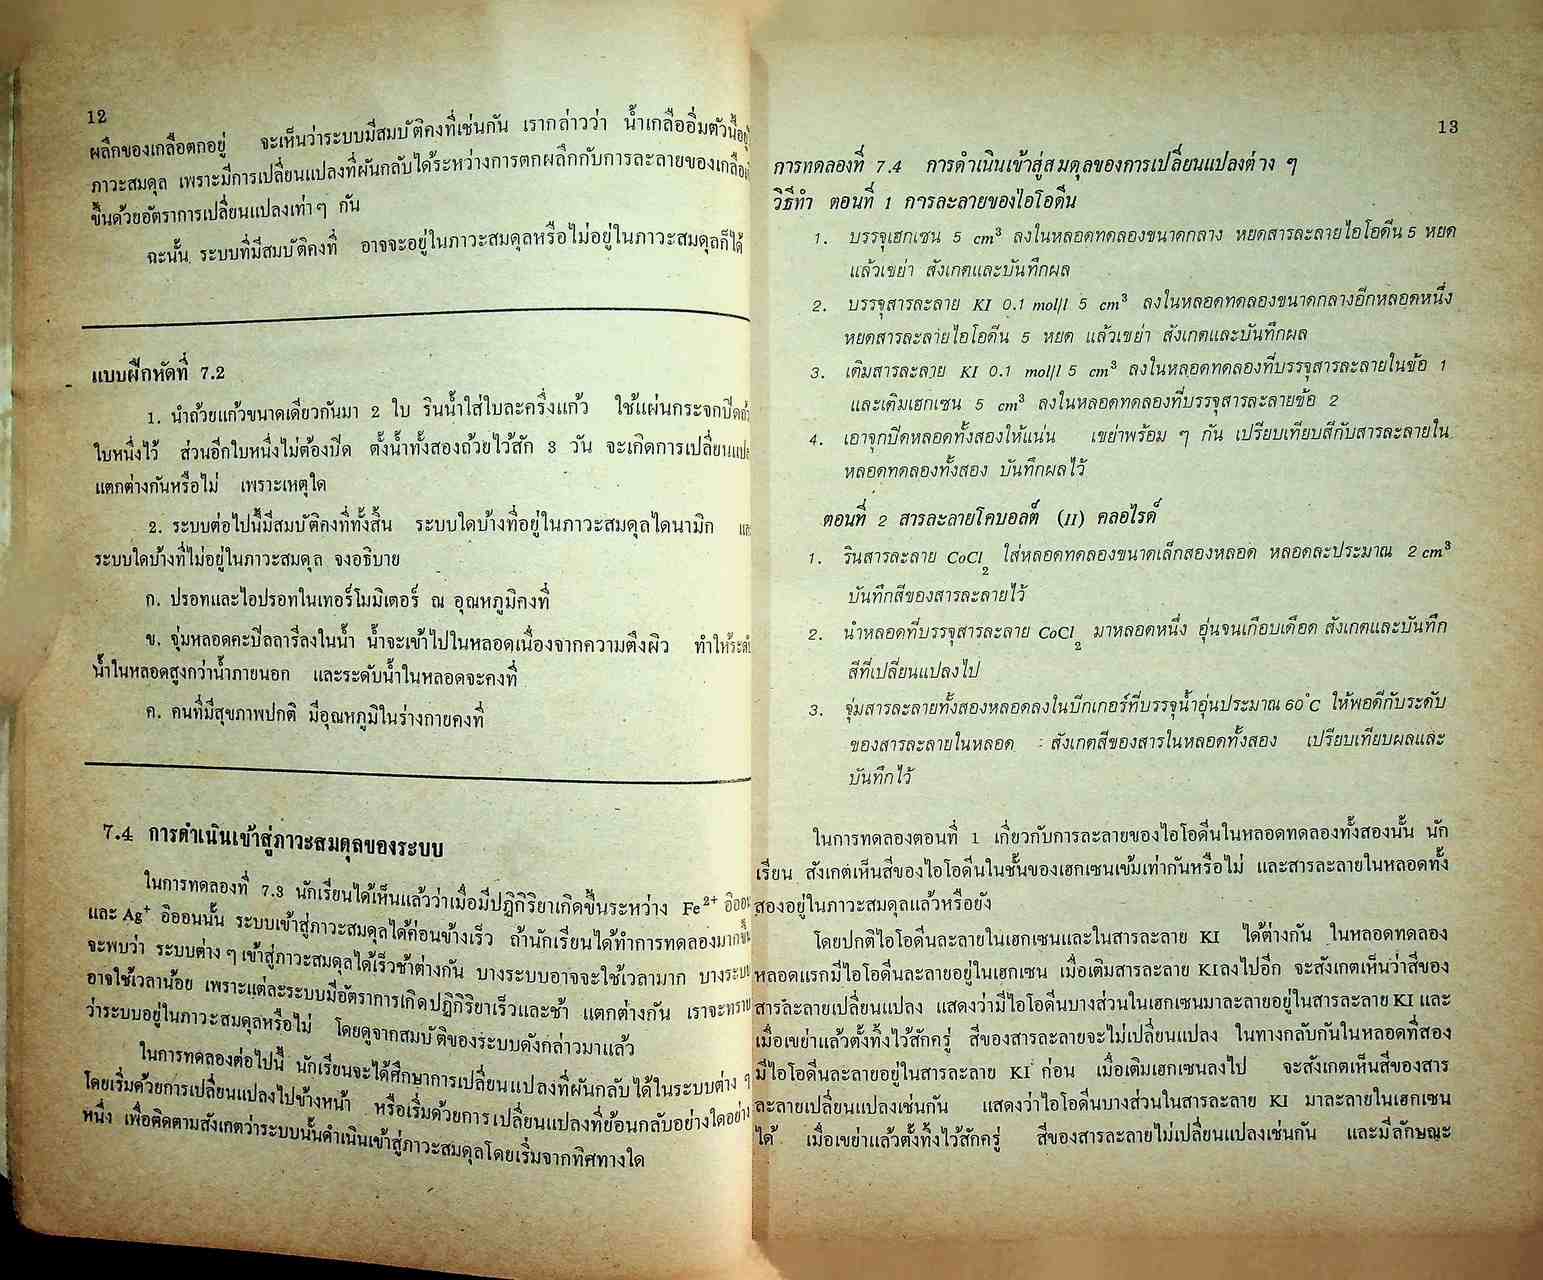 12
ผลึกของเกลือตกอยู่ จะเห็นว่าระบบมีสมบัติคงที่เช่นกัน เรากล่าวว่า น้ำเกลืออิ่มตัวนี้อยู่
ภาวะสมดุล เพราะมีการเปลี่ยนแปลงที่ผันกลับได้ระหว่างการตกผลึกกับการละลายของเกลือ
ขึ้นด้วยอัตราการเปลี่ยนแปลงเท่าๆ กัน
ฉะนั้น ระบบที่มีสมบัติคงที่ อาจจะอยู่ในภาวะสมดุลหรือไม่อยู่ในภาวะสมดุลก็ได้
แบบฝึกหัดที่ 7.2
1. นำถ้วยแก้วขนาดเดียวกันมา 2 ใบ รินน้ำใส่ใบละครึ่งแก้ว ใช้แผ่นกระจกปิด
ใบหนึ่งไว้ ส่วนอีกใบหนึ่งไม่ต้องปิด ตั้งน้ำทั้งสองถ้วยไว้สัก 3 วัน จะเกิดการเปลี่ยนแปล
แตกต่างกันหรือไม่ เพราะเหตุใด
2. ระบบต่อไปนี้มีสมบัติคงที่ทั้งสิ้น ระบบใดบ้างที่อยู่ในภาวะสมดุลไดนามิก และ
ระบบใดบ้างที่ไม่อยู่ในภาวะสมดุล จงอธิบาย
ก. ปรอทและไอปรอทในเทอร์โมมิเตอร์ ณ อุณหภูมิคงที่
ข. จุ่มหลอดคะปิลลารีลงในน้ำ น้ำจะเข้าไปในหลอดเนื่องจากความตึงผิว ทำให้ระดับ
น้ำในหลอดสูงกว่าน้ำภายนอก และระดับน้ำในหลอดจะคงที่
ค. คนที่มีสุขภาพปกติ มีอุณหภูมิในร่างกายคงที่
7.4 การดำเนินเข้าสู่ภาวะสมดุลของระบบ
ในการทดลองที่ 7.3 นักเรียนได้เห็นแล้วว่าเมื่อมีปฏิกิริยาเกิดขึ้นระหว่าง Fe²⁺ อิออน
และ Ag⁺ อิออนนั้น ระบบเข้าสู่ภาวะสมดุลได้ค่อนข้างเร็ว ถ้านักเรียนได้ทำการทดลองมากขึ้น
จะพบว่า ระบบต่าง ๆ เข้าสู่ภาวะสมดุลได้เร็วช้าต่างกัน บางระบบอาจจะใช้เวลามาก บางระบบ
อาจใช้เวลาน้อย เพราะแต่ละระบบมีอัตราการเกิดปฏิกิริยาเร็วและช้า แตกต่างกัน เราจะทราบ
ว่าระบบอยู่ในภาวะสมดุลหรือไม่ โดยดูจากสมบัติของระบบดังกล่าวมาแล้ว
ในการทดลองต่อไปนี้ นักเรียนจะได้ศึกษาการเปลี่ยนแปลงที่ผันกลับได้ในระบบต่าง ๆ
โดยเริ่มด้วยการเปลี่ยนแปลงไปข้างหน้า หรือเริ่มด้วยการเปลี่ยนแปลงที่ย้อนกลับอย่างใดอย่าง
หนึ่ง เพื่อติดตามสังเกตว่าระบบนั้นดำเนินเข้าสู่ภาวะสมดุลโดยเริ่มจากทิศทางใด
13
การทดลองที่ 7.4 การดำเนินเข้าสู่สมดุลของการเปลี่ยนแปลงต่าง ๆ
วิธีทำ ตอนที่ 1 การละลายของไอโอดีน
1. บรรจุเฮกเซน 5 cm³ ลงในหลอดทดลองขนาดกลาง หยดสารละลายไอโอดีน 5 หยด
แล้วเขย่า สังเกตและบันทึกผล
2. บรรจุสารละลาย KI 0.1 mol/l 5 cm³ ลงในหลอดทดลองขนาดกลางอีกหลอดหนึ่ง
หยดสารละลายไอโอดีน 5 หยด แล้วเขย่า สังเกตและบันทึกผล
3. เติมสารละลาย KI 0.1 mol/l 5 cm³ ลงในหลอดทดลองที่บรรจุสารละลายในข้อ 1
และเติมเฮกเซน 5 cm³ ลงในหลอดทดลองที่บรรจุสารละลายข้อ 2
4. เอาจุกปิดหลอดทั้งสองให้แน่น เขย่าพร้อม ๆ กัน เปรียบเทียบสีกับสารละลายใน
หลอดทดลองทั้งสอง บันทึกผลไว้
ตอนที่ 2 สารละลายโคบอลต์ (II) คลอไรด์
1. รินสารละลาย CoCl₂ ใส่หลอดทดลองขนาดเล็กสองหลอด หลอดละประมาณ 2 cm³
บันทึกสีของสารละลายไว้
2. นำหลอดที่บรรจุสารละลาย CoCl₂ มาหลอดหนึ่ง อุ่นจนเกือบเดือด สังเกตและบันทึก
สีที่เปลี่ยนแปลงไป
3. จุ่มสารละลายทั้งสองหลอดลงในบีกเกอร์ที่บรรจุน้ำอุ่นประมาณ 60°C ให้พอดีกับระดับ
ของสารละลายในหลอด สังเกตสีของสารในหลอดทั้งสอง เปรียบเทียบผลและ
บันทึกไว้
ในการทดลองตอนที่ 1 เกี่ยวกับการละลายของไอโอดีนในหลอดทดลองทั้งสองนั้น นัก
เรียน สังเกตเห็นสีของไอโอดีนในชั้นของเฮกเซนเข้มเท่ากันหรือไม่ และสารละลายในหลอดทั้ง
สองอยู่ในภาวะสมดุลแล้วหรือยัง
โดยปกติไอโอดีนละลายในเฮกเซนและในสารละลาย KI ได้ต่างกัน ในหลอดทดลอง
หลอดแรกมีไอโอดีนละลายอยู่ในเฮกเซน เมื่อเติมสารละลาย KI ลงไปอีก จะสังเกตเห็นว่าสีของ
สารละลายเปลี่ยนแปลง แสดงว่ามีไอโอดีนบางส่วนในเฮกเซนมาละลายอยู่ในสารละลาย KI และ
เมื่อเขย่าแล้วตั้งทิ้งไว้สักครู่ สีของสารละลายจะไม่เปลี่ยนแปลง ในทางกลับกันในหลอดที่สอง
มีไอโอดีนละลายอยู่ในสารละลาย KI ก่อน เมื่อเติมเฮกเซนลงไป จะสังเกตเห็นสีของสาร
ละลายเปลี่ยนแปลงเช่นกัน แสดงว่าไอโอดีนบางส่วนในสารละลาย KI มาละลายในเฮกเซน
ได้ เมื่อเขย่าแล้วตั้งทิ้งไว้สักครู่ สีของสารละลายไม่เปลี่ยนแปลงเช่นกัน และมีลักษณะ